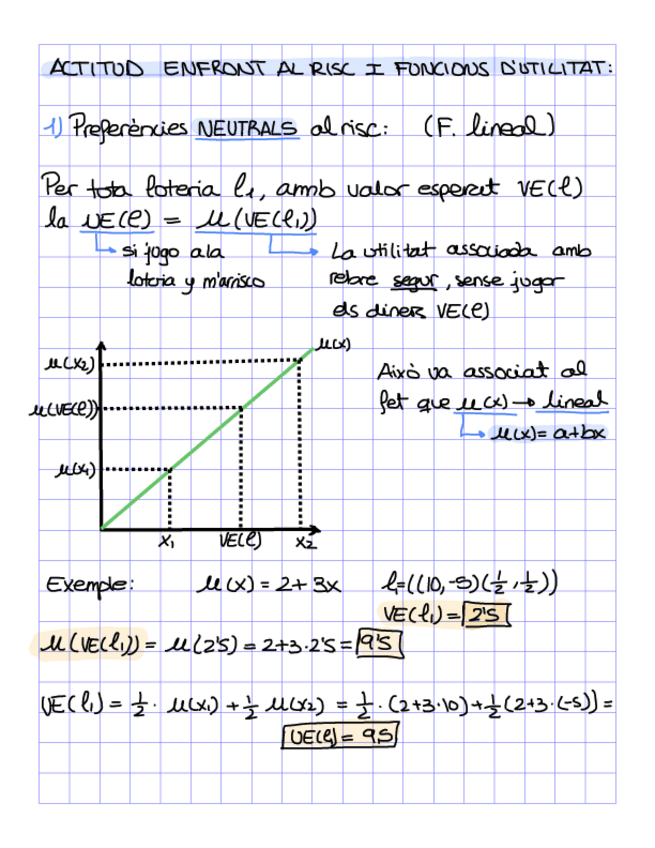 ACTITUD ENFRONT AL RISC I FUNCIONS D'UTILITAT:
1) Preferències NEUTRALS al risc: (F. lineal)
Per tota loteria l₁, amb valor esperat VE(l)
la UE(l) = u(VE(l₁))
si jugo a la
loteria y m'arrisco
La utilitat associada amb
rebre segur, sense jugar
els diners VE(l)
u(x)
u(x2)
u(VE(l))
u(x1)
x₁ VE(l) x2
Això va associat al
fet que u(x) → lineal
u(x)= a+bx
Exemple: u(x) = 2+3x l₁=((10,-5)(1/2,1/2))
VE(l₁) = 2'5
u(VE(l₁)) = u(2'5) = 2+3·2'5 = 9'5
UE(l₁) = 1/2 · u(x₁) + 1/2 u(x2) = 1/2 · (2+3·10)+1/2(2+3·(-5)) =
UE(l) = 9,5